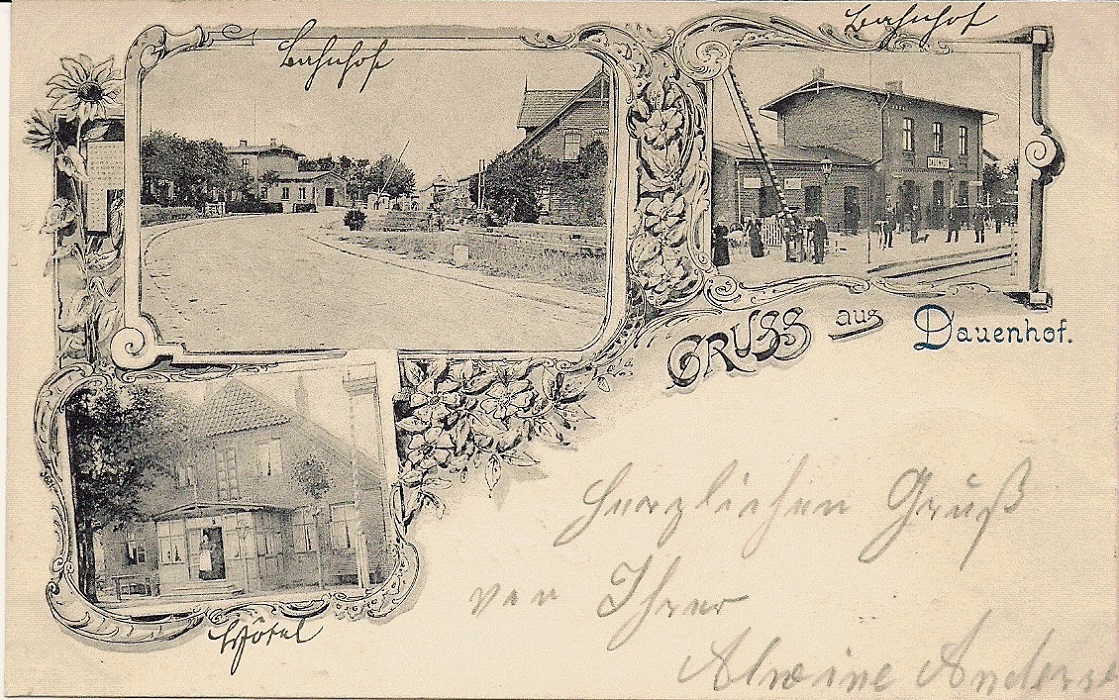 Bahnhof
Bahnhof
DAUENHOF
GRUSS aus Dauenhof.
Hôtel
Herzlichen Gruß
von Ihrer
Alwine Anders